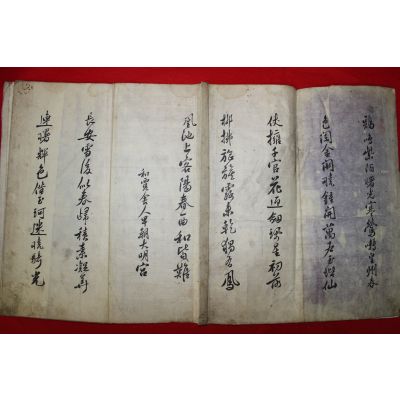 鷄鳴紫陌曙光寒鶯囀皇州春
色闌金闕曉鐘開萬戶玉階仙
仗擁千官花迎劍珮星初落
柳拂旌旗露未乾獨有鳳
凰池上客陽春一曲和皆難
和賈舍人早朝大明宮
長安雪後似春歸積素凝華
連曙輝色借玉珂迷曉騎光